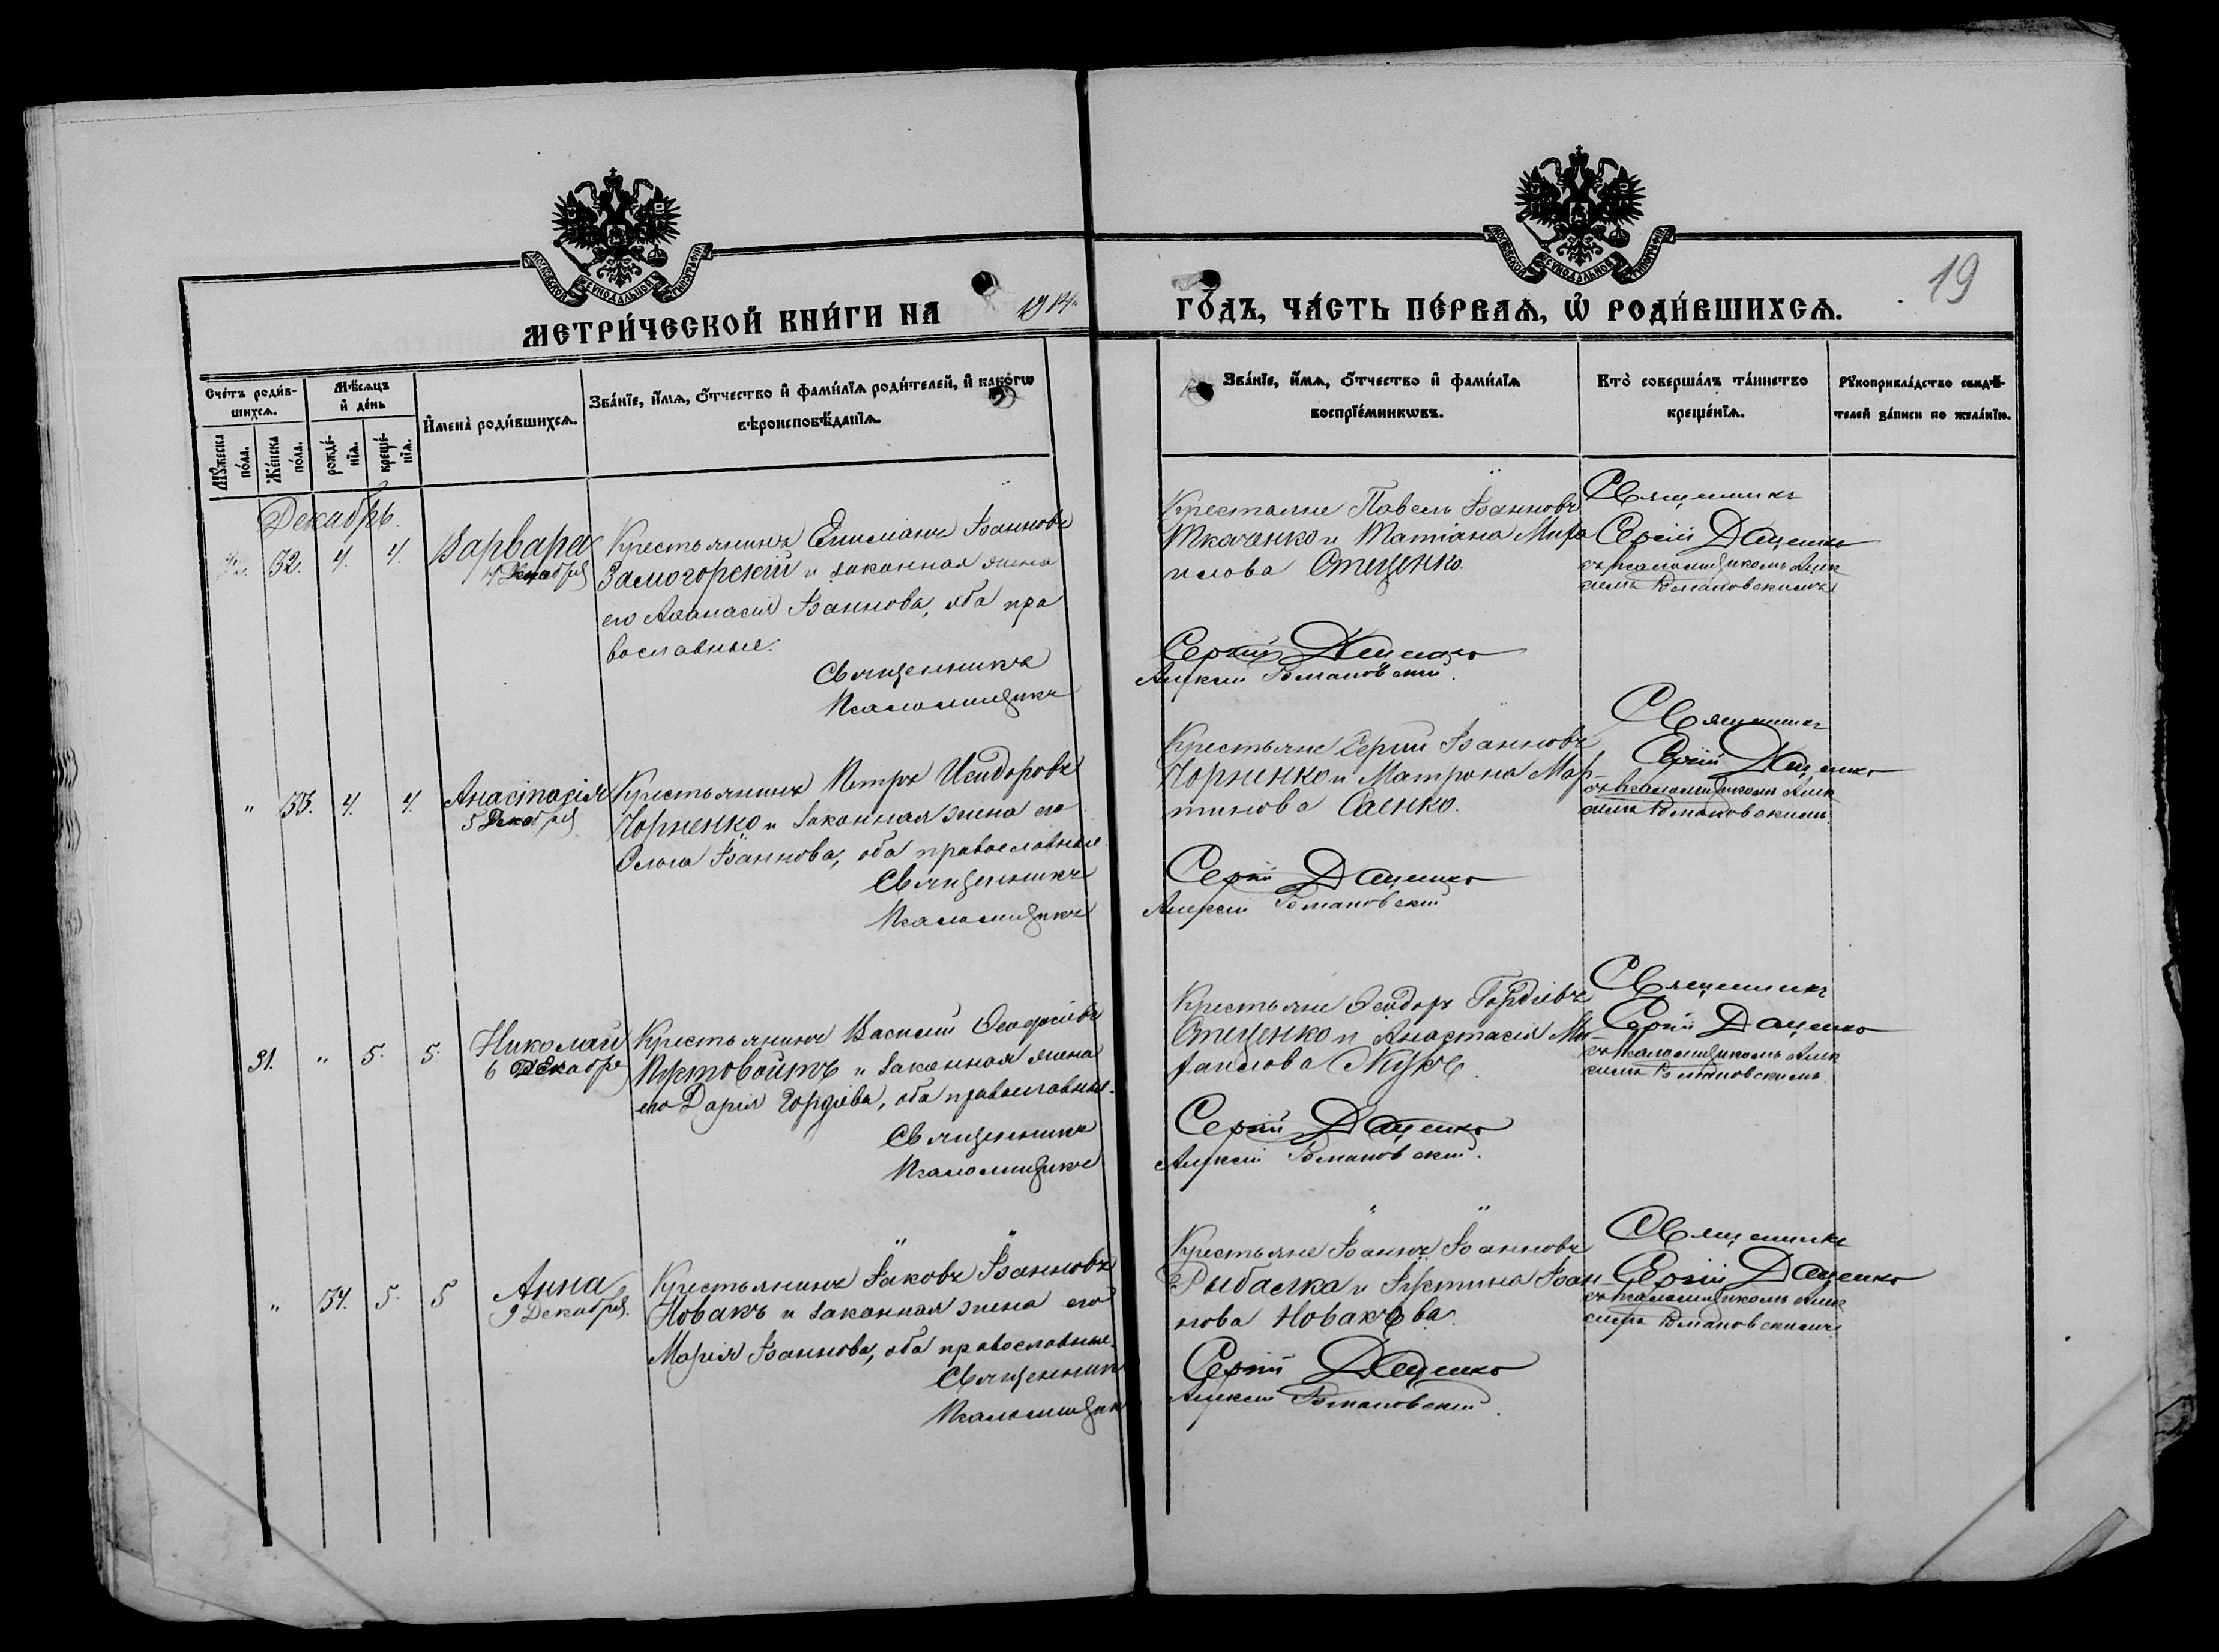 МОСКОВСКОЙ СѴНОДАЛЬНОЙ ТИПОГРАФІИ
МОСКОВСКОЙ СѴНОДАЛЬНОЙ ТИПОГРАФІИ
19
МЕТРИ́ЧЕСКОЙ КНИ́ГИ НА 1914 ГО́ДЪ, ЧА́СТЬ ПЕ́РВАѦ, Ѡ҆ РОДИ́ВШИХСѦ.
Сче́тъ роди́в-
шихсѧ.
Мѣ́сѧцъ
и҆ де́нь
И҆мена̀ роди́вшихсѧ.
Зва́нїе, и҆́мѧ, ѻ҆́тчество и҆ фами́лїѧ роди́телей, и҆ како́гѡ
вѣроисповѣ́данїѧ.
Зва́нїе, и҆́мѧ, ѻ҆́тчество и҆ фами́лїѧ
воспрїе́мникѡвъ.
Кто̀ соверша́лъ та́инство
креще́нїѧ.
Рꙋкоприкла́дство свидѣ́-
телей за́писи по жела́нїю.
Мꙋ́жеска
по́ла.
Же́нска
по́ла.
рожде́-
нїѧ.
креще́-
нїѧ.
Декабрь.
32. 4. 4.
Варвара
4 Декабря
Крестьянинъ Емиліанъ Іоанновъ
Замогорскій и законная жена
его Аѳанасія Іоаннова, оба пра
вославные.
Священникъ
Псаломщикъ
Крестьяне Павелъ Іоанновъ
Ткаченко и Татіана Миха
илова Стеценко.
Сергій Даценко
Алексій Романовскій.
Священникъ
Сергій Даценко
съ псаломщикомъ Алек
сіемъ Романовскимъ
" 33. 4. 4.
Анастасія
5 Декабря
Крестьянинъ Петръ Исидоровъ
Чорненко и законная жена его
Ольга Іоаннова, оба православные.
Священникъ
Псаломщикъ
Крестьяне Сергій Іоанновъ
Чорненко и Матрона Мар-
тинова Саенко.
Сергій Даценко
Алексій Романовскій
Священникъ
Сергій Даценко
съ псаломщикомъ Алек
сіемъ Романовскимъ
31. " 5. 5.
Николай
6 Декабря
Крестьянинъ Василій
Пустовойтъ и законная жена
его Дарія Гордіева, оба православные.
Священникъ
Псаломщикъ
Крестьяне Ѳеодоръ Гордіевъ
Стеценко и Анастасія Ми-
хаилова
Сергій Даценко
Алексій Романовскій.
Священникъ
Сергій Даценко
съ псаломщикомъ Алек
сіемъ Романовскимъ
" 34. 5. 5
Анна
9 Декабря.
Крестьянинъ Іаковъ Іоанновъ
Новакъ и законная жена его
Марія Іоаннова, оба православные.
Священник
Псаломщик
Крестьяне Іоаннъ Іоанновъ
Рыбалка и Іустина Іоан-
нова Новакова.
Сергій Даценко
Алексій Романовскій.
Священникъ
Сергій Даценко
съ псаломщикомъ Алек
сіемъ Романовскимъ